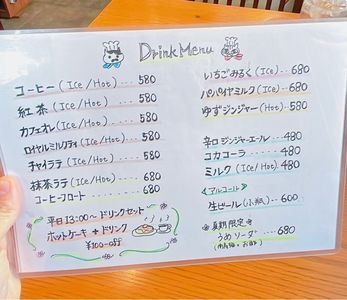 Drink Menu
コーヒー (Ice/Hot) ... 580
紅茶 (Ice/Hot) ... 580
カフェオレ (Ice/Hot) ... 580
ロイヤルミルクティ (Ice/Hot) ... 580
チャイラテ (Ice/Hot) ... 580
抹茶ラテ (Ice/Hot) ... 680
コーヒーフロート ... 680
平日13:00〜ドリンクセット
ホットケーキ + ドリンク
¥100-OFF
いちごみるく (Ice) ... 680
パパイヤミルク (Ice) ... 680
ゆずジンジャー (Hot) ... 580
辛口ジンジャーエール ... 480
コカコーラ ... 480
ミルク (Ice/Hot) ... 480
<アルコール>
生ビール (小瓶) ... 600
夏期限定
うめソーダ ... 680